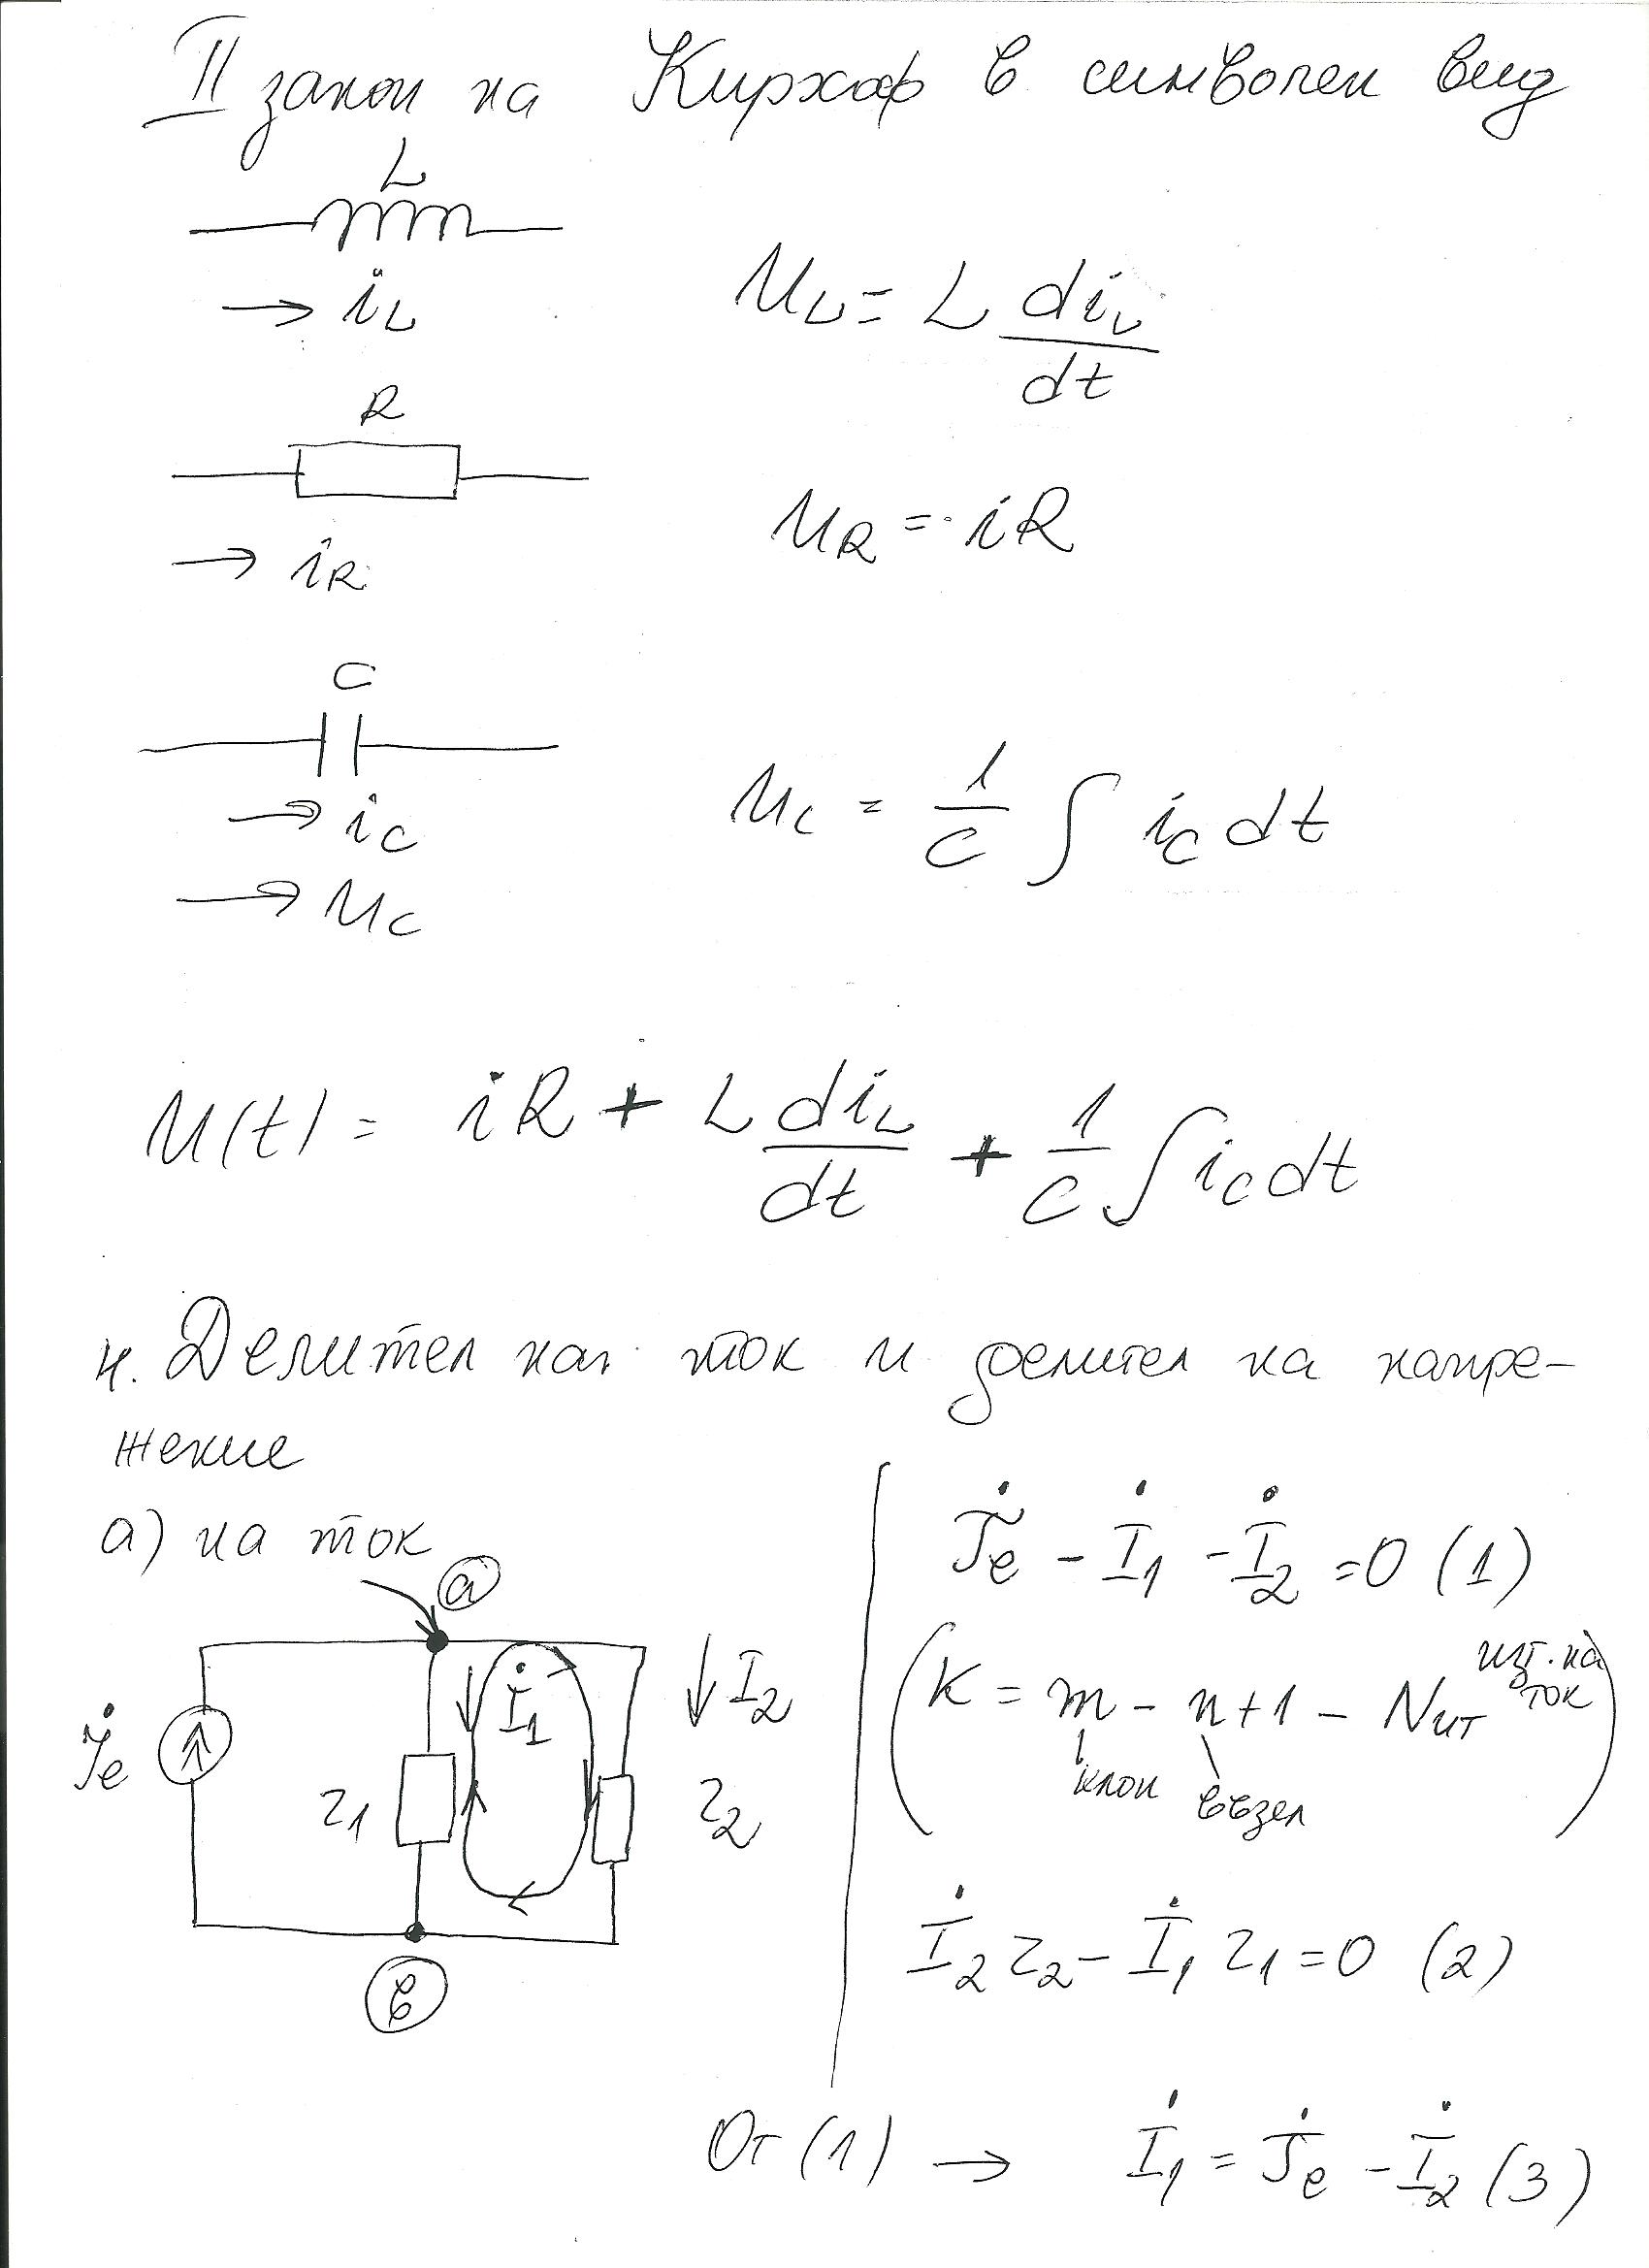 II закон на Кирхоф в символен вид
L
→ iL
uL = L diL/dt
R
→ iR
uR = iR
C
→ iC
→ uC
uC = 1/C ∫ iC dt
u(t) = iR + L diL/dt + 1/C ∫ iC dt
4. Делител на ток и делител на напре-
жение
а) на ток
a
J̇e
Z1
İ1
I2
Z2
в
J̇e - İ1 - İ2 = 0 (1)
(K = m - n + 1 - Nит) изт. на ток
клон възел
İ2 Z2 - İ1 Z1 = 0 (2)
От (1) → İ1 = J̇e - İ2 (3)